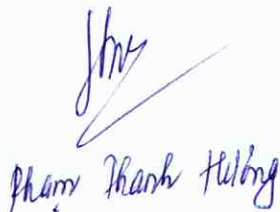 Phạm Thanh Hướng